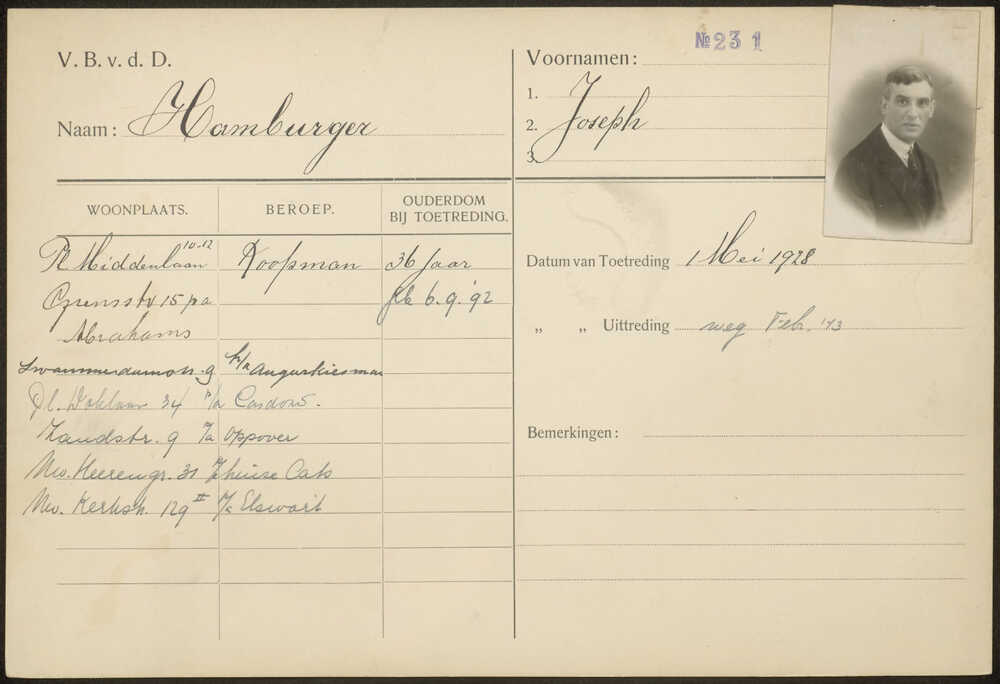 № 231
V. B. v. d. D.
Naam: Hamburger
Voornamen:
1.
2. Joseph
3.
WOONPLAATS. BEROEP. OUDERDOM BIJ TOETREDING.
Pl Middenlaan 10-12 Koopman 36 Jaar
Grensstr 15 pa gb 6.9.'92
Abrahams
Swammerdamstr. 9 p/a Augurkiesman
Pl. 34 p/a Cardozo.
Zandstr. 9 p/a Oppover
Nw. Heerengr. 31 Cats
Nw. Kerkstr. 129 II p/a Elswort
Datum van Toetreding 1 Mei 1928
„ „ Uittreding weg Febr. '43
Bemerkingen: